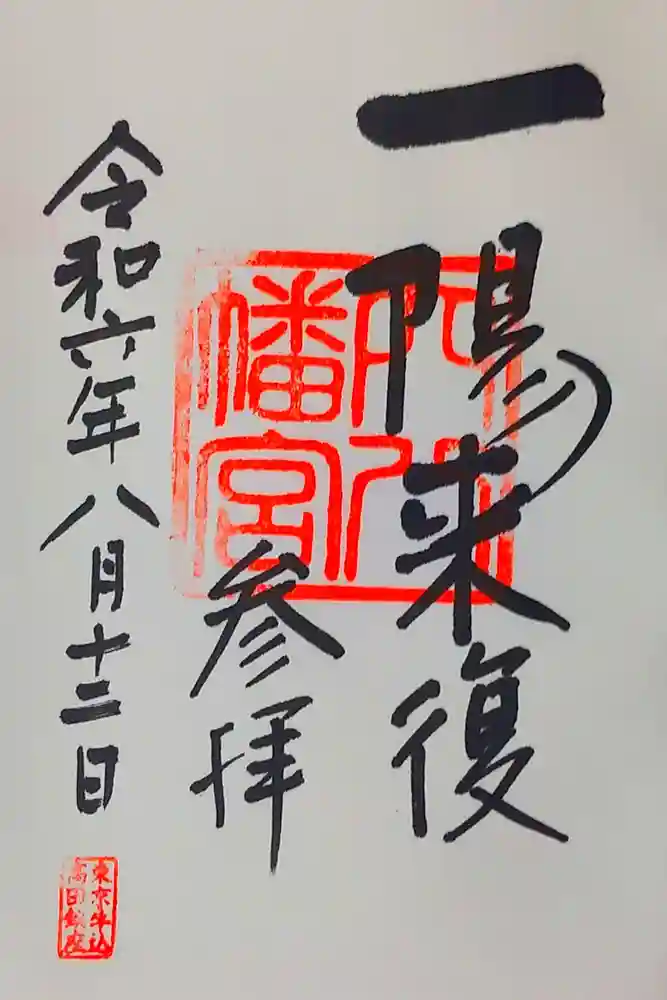 一陽来復
穴八
幡宮
参拝
令和六年八月十二日
東京牛込
高田鎮座